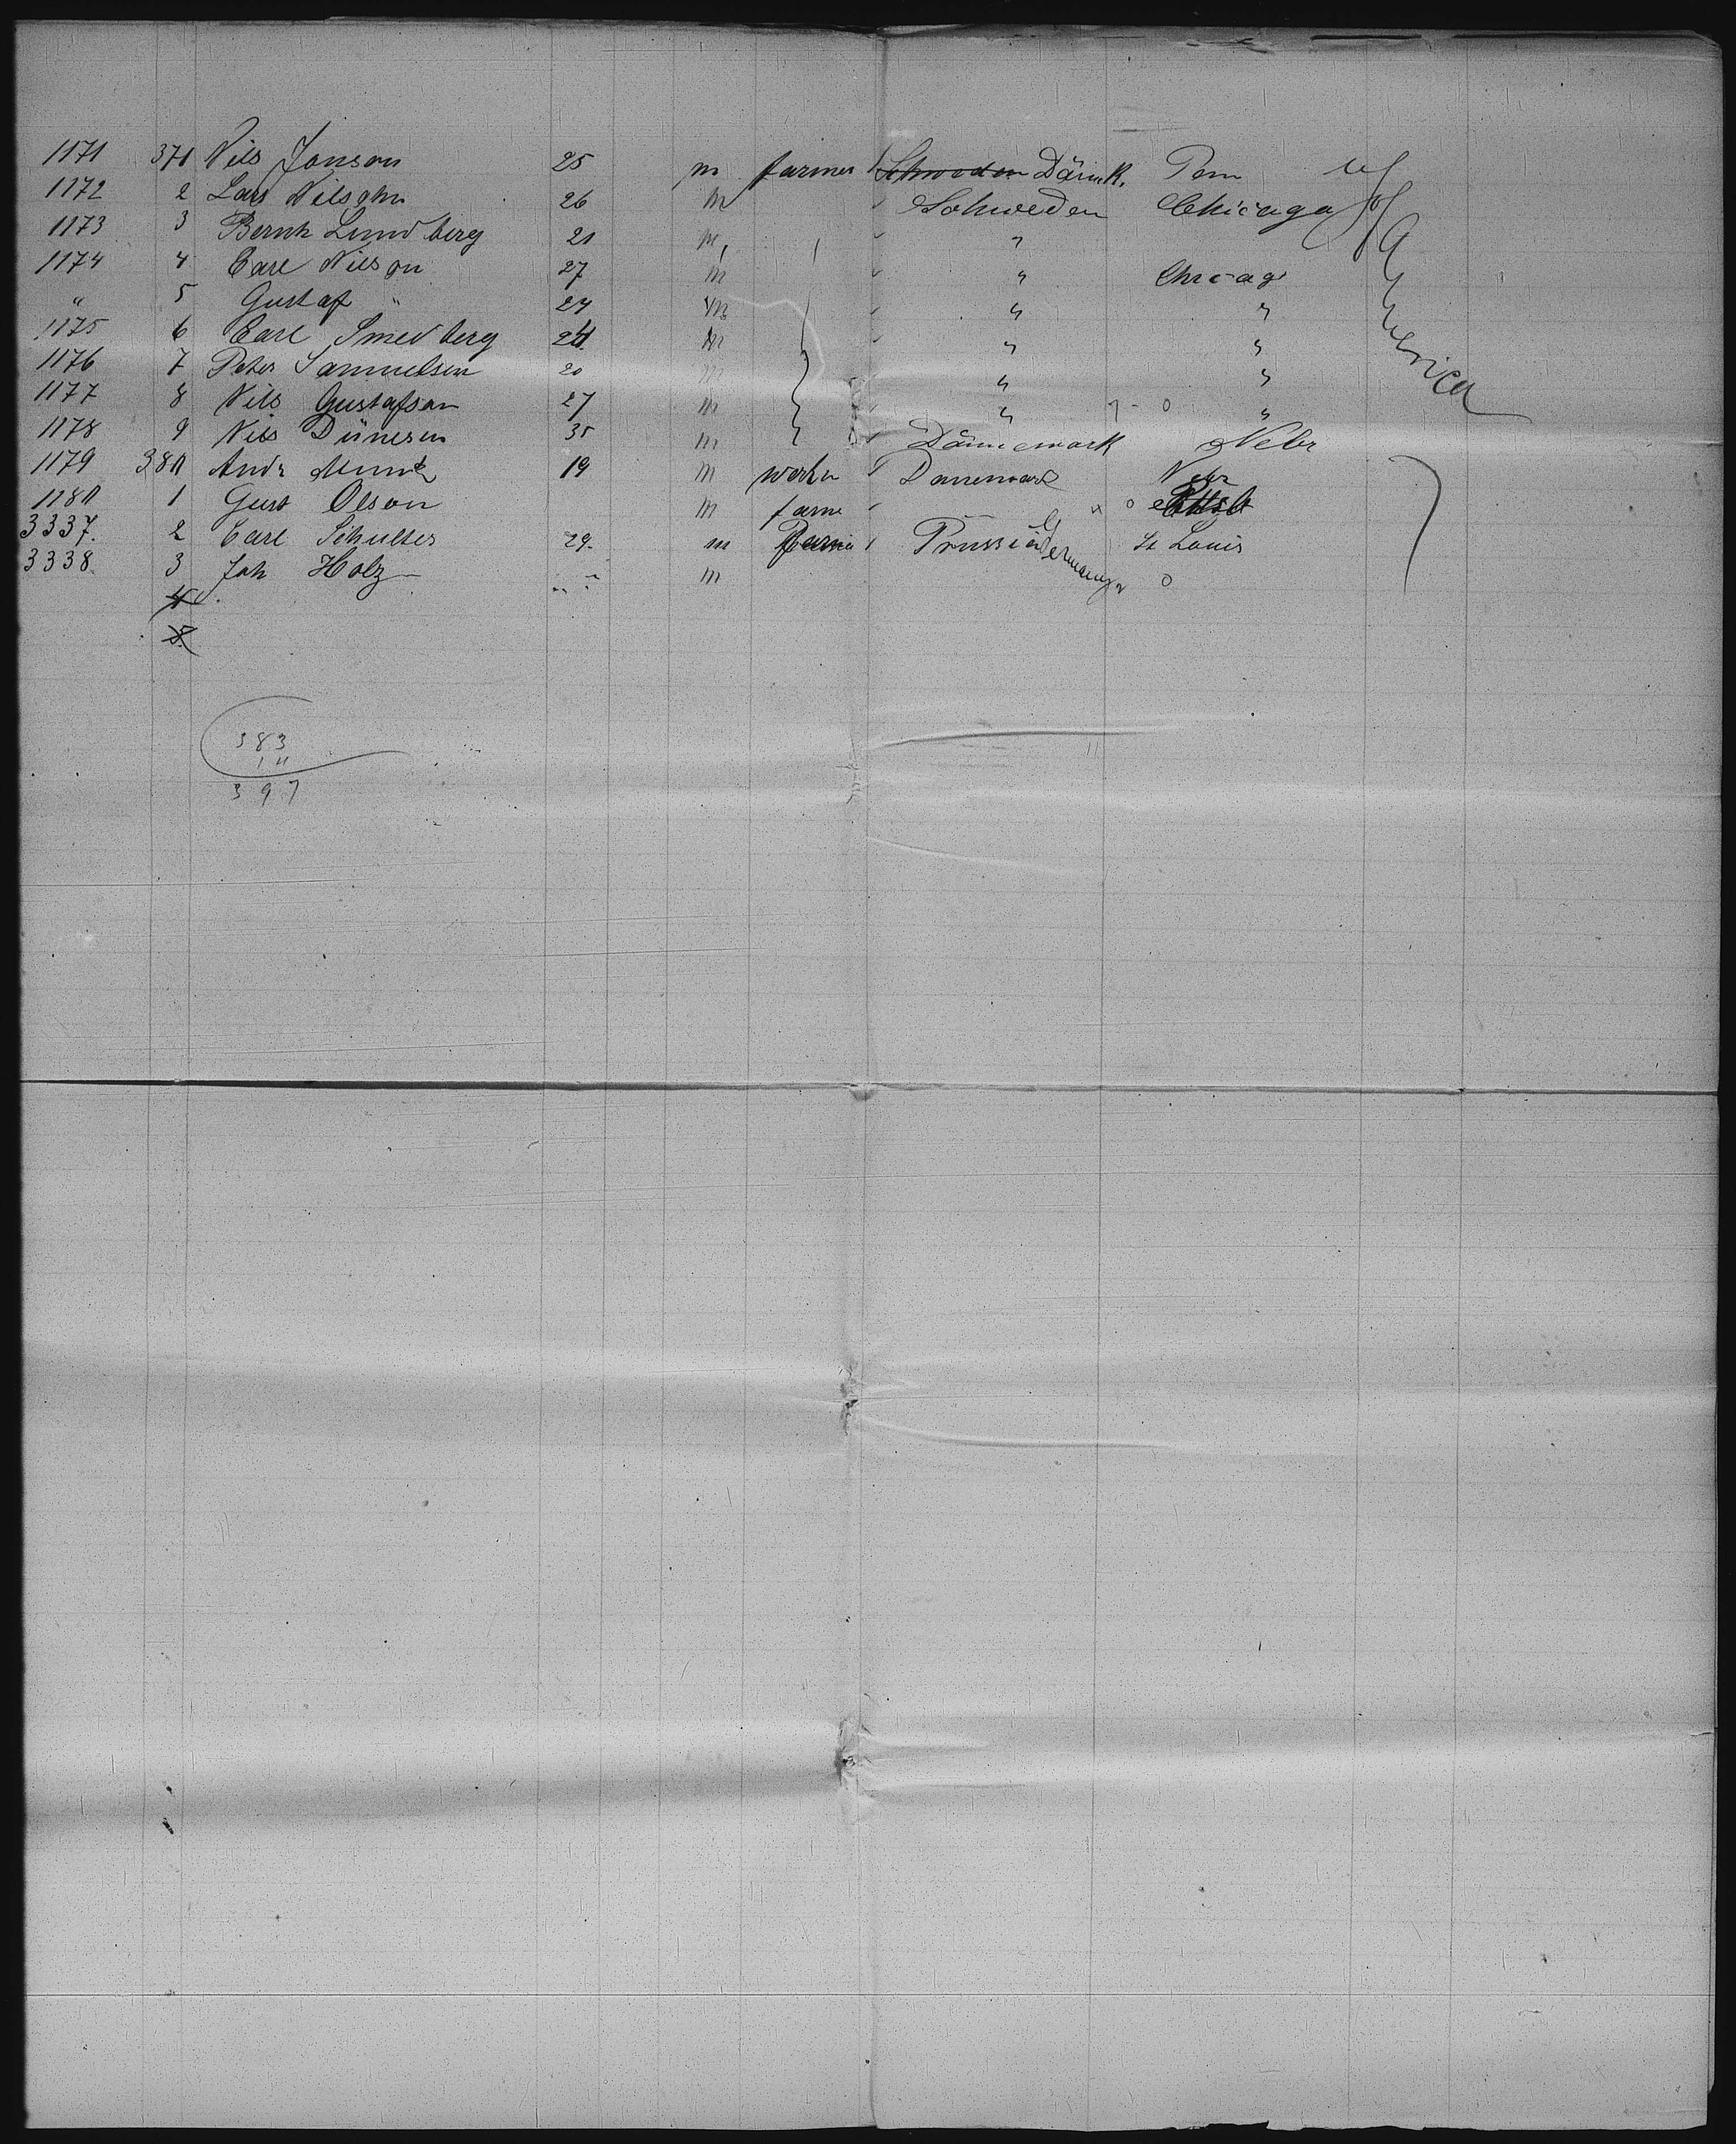 1171 371 Nils Jonson 25 m farmer Schweden Dänmk. Penn U
1172 2 Lars Nilsohn 26 m Schweden Chicago of
1173 3 Bernh Lundberg 21 m "
1174 4 Carl Nilson 27 m " Chicag
" 5 Gustaf " 24 m " "
1175 6 Carl Smedberg 24 m " "
1176 7 Peter Samuelsen 20 m " "
1177 8 Nils Gustafson 27 m " "
1178 9 Nils Dünesen 35 m Dännemark Nebr
1179 380 Andr Munk 19 m worker Danemark Nebr
1180 1 Gust Olson m farme
3337. 2 Carl Schultes 29. m Prussia Germany St Louis
3338 3 Joh Holz m
4
5
America
383
14
397